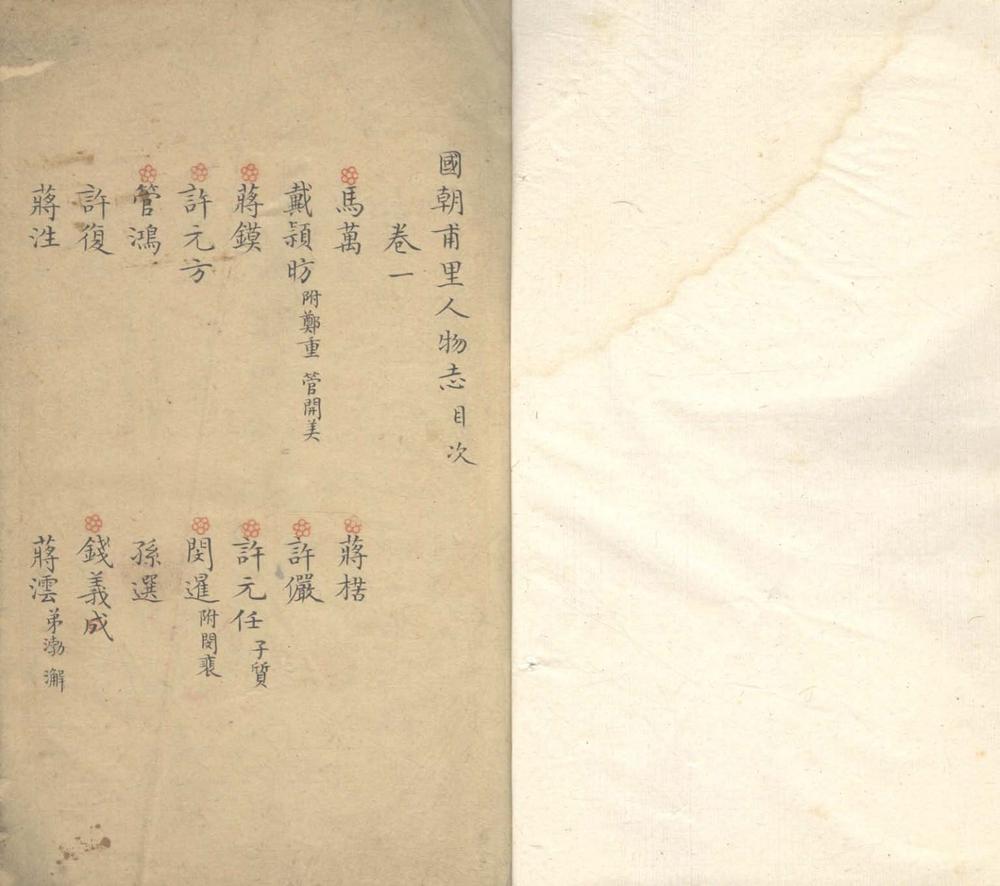 國朝甫里人物志目次
卷一
馬萬
蔣楛
戴潁昉 附鄭重 管開美
許儼
蔣鏌
許元任 子質
許元方
閔暹 附閔裵
管鴻
孫選
許復
錢義成
蔣泩
蔣澐 弟渤 澥